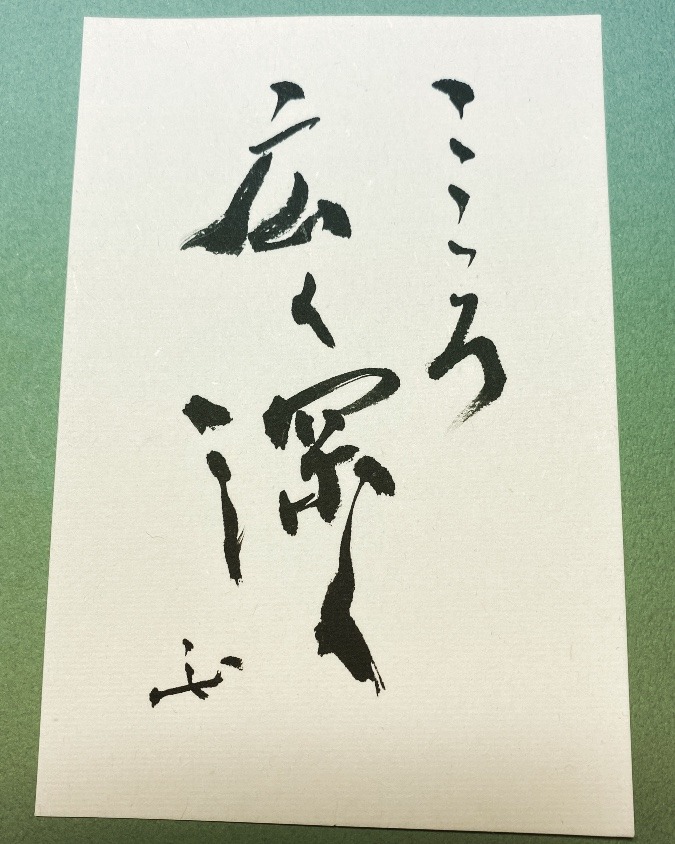 こころ
広く深く